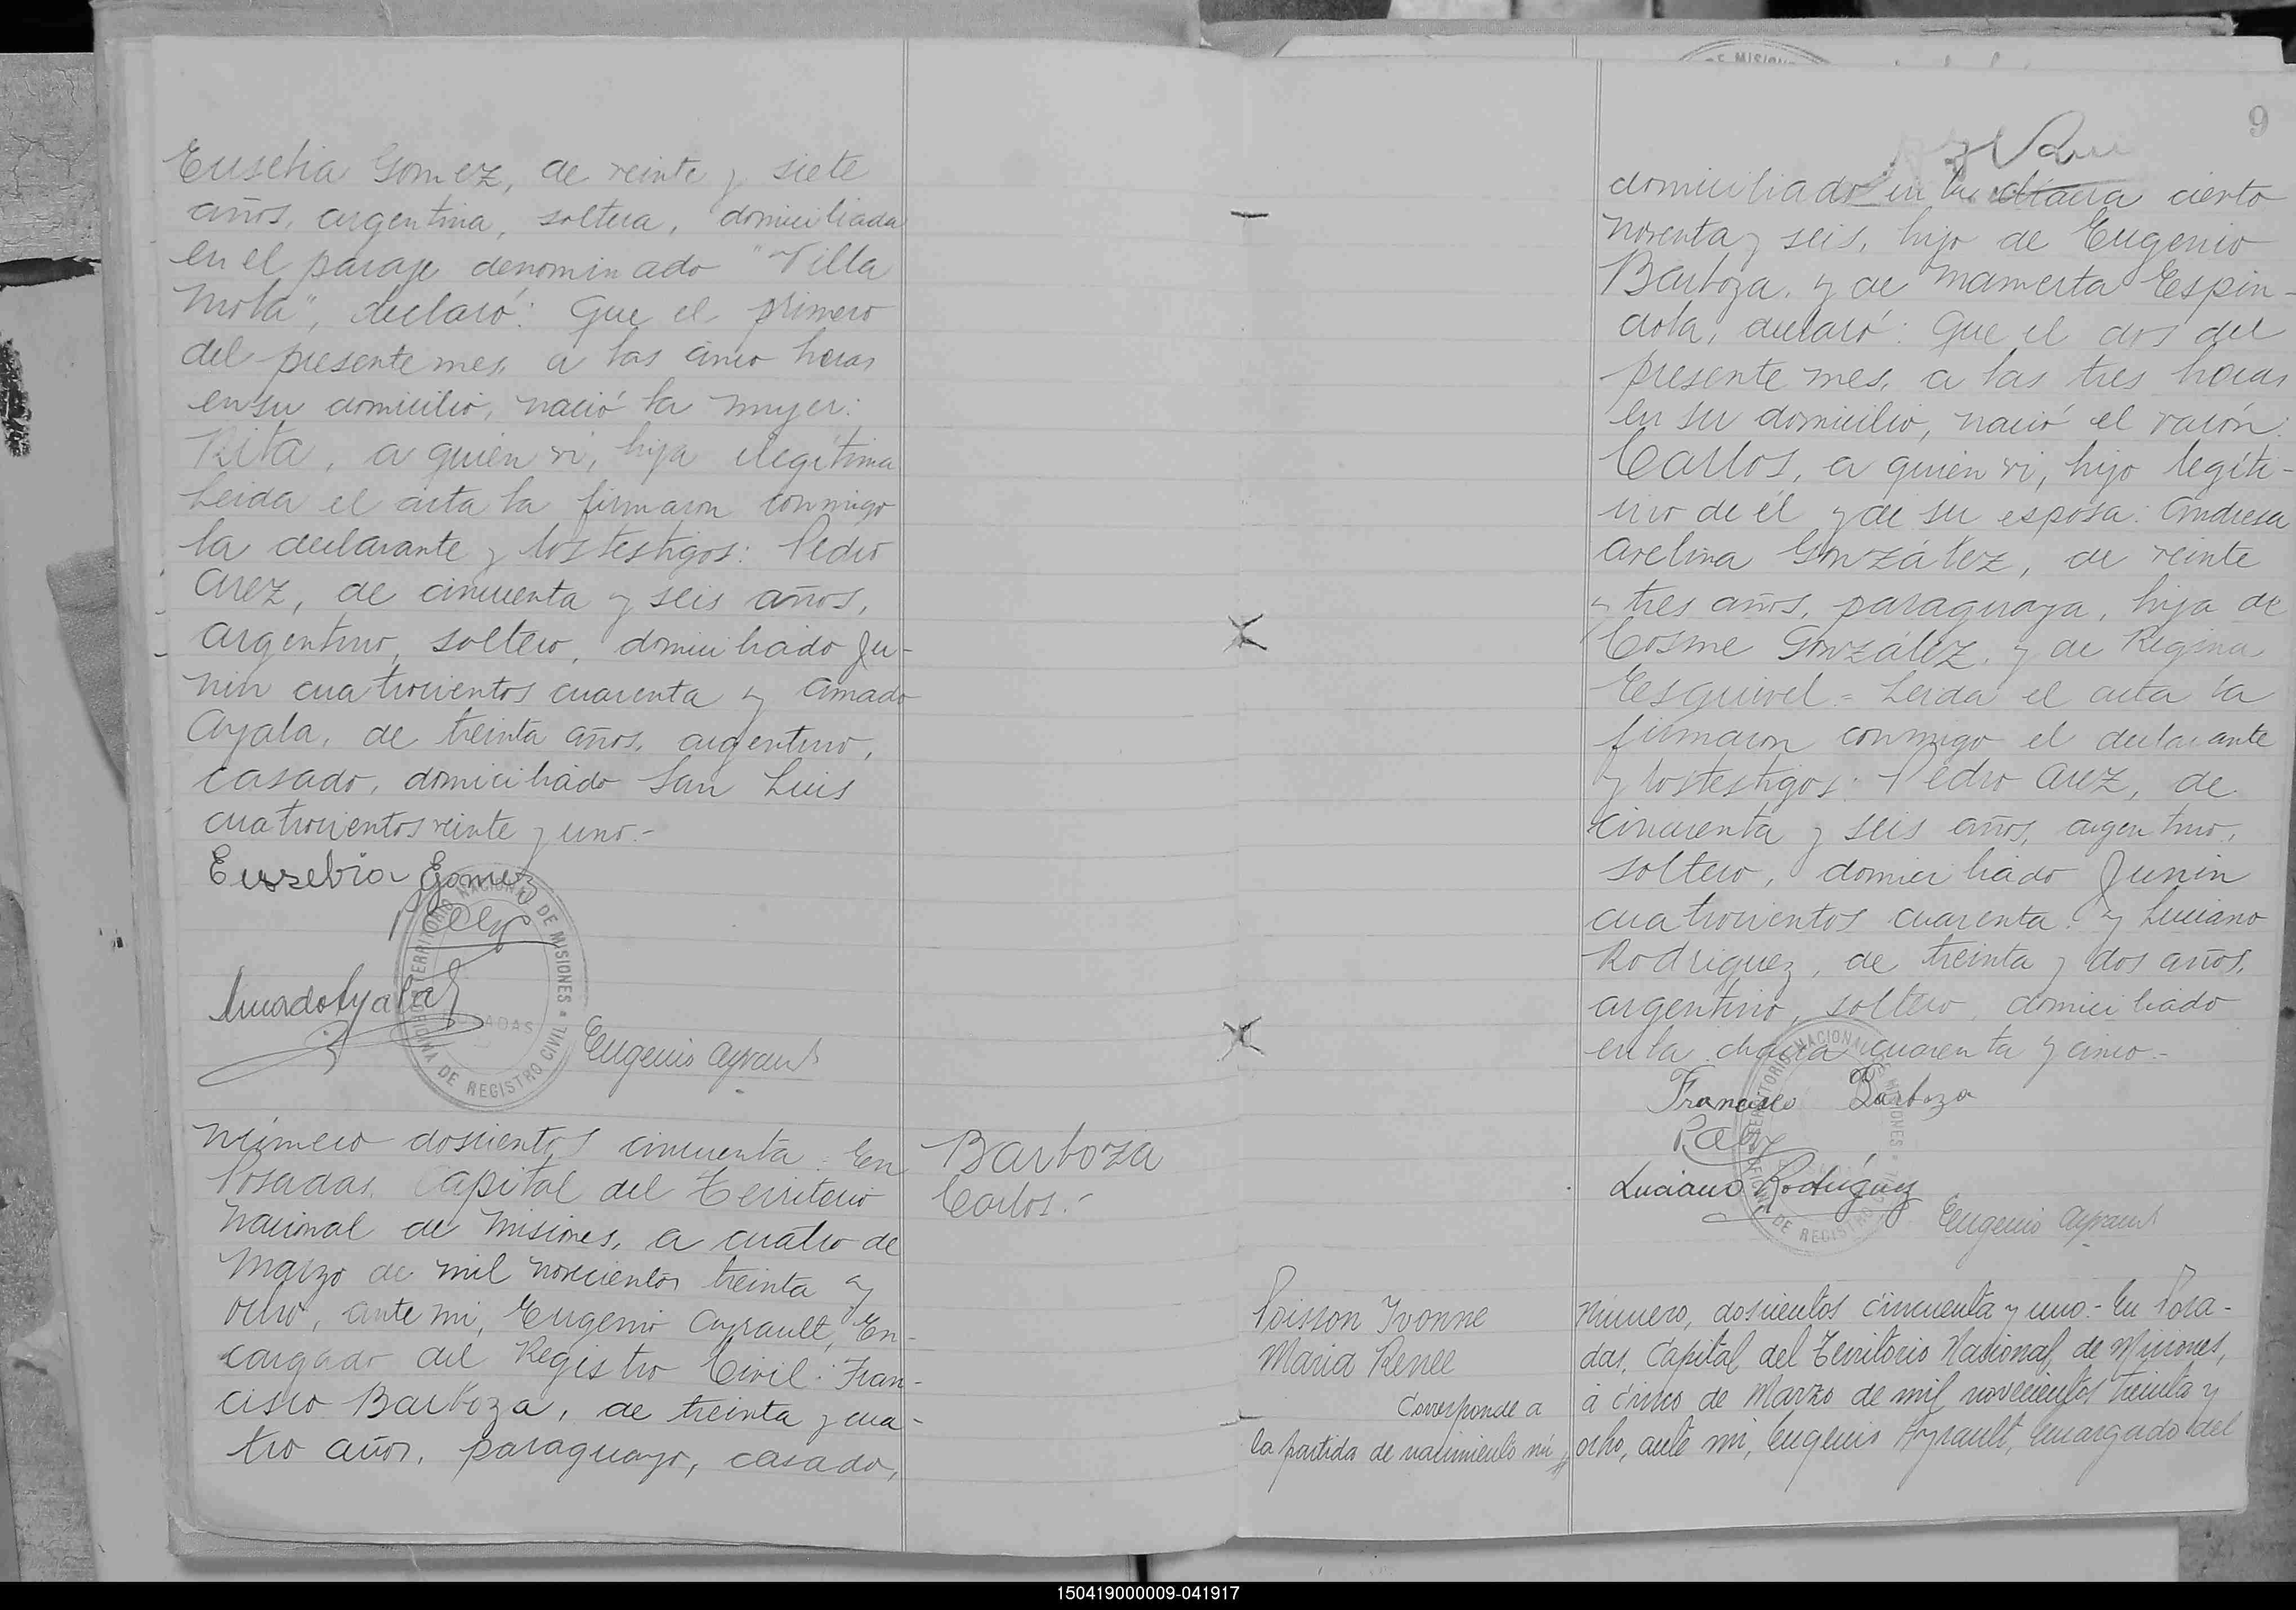 Eusebia Gomez, de veinte y siete
años, argentina, soltera, domiciliada
en el paraje denominado "Villa
Mola", declaró: Que el primero
del presente mes, a las cinco horas
en su domicilio, nació la mujer:
Rita, a quien vi, hija ilegítima
Leida el acta la firmaron conmigo
la declarante y los testigos: Pedro
Arez, de cincuenta y seis años,
argentino, soltero, domiciliado Ju-
nin cuatrocientos cuarenta y Amado
Ayala, de treinta años, argentino,
casado, domiciliado San Luis
cuatrocientos veinte y uno.-
Eusebia Gomez
Amado Ayala
TERRITORIO NACIONAL DE MISIONES
POSADAS
OFICINA DE REGISTRO CIVIL
Eugenio Ayrault
Número doscientos cincuenta. En
Posadas, Capital del Territorio
Nacional de Misiones, a cuatro de
Marzo de mil novecientos treinta y
ocho, ante mi, Eugenio Ayrault, En-
cargado del Registro Civil: Fran-
cisco Barboza, de treinta y cua-
tro años, paraguayo, casado,
Barboza
Carlos.-
DE MISIONES
9
domiciliado en la chacra ciento
noventa y seis, hijo de Eugenio
Barboza, y de Mamerta Espín-
dola, declaró: Que el dos del
presente mes, a las tres horas
en su domicilio, nació el varón:
Carlos, a quien vi, hijo legíti-
mo de él y de su esposa: Andresa
Avelina González, de veinte
y tres años, paraguaya, hija de
Cosme González, y de Regina
Esquivel = Leida el acta la
firmaron conmigo el declarante
y los testigos: Pedro Arez, de
cincuenta y seis años, argentino,
soltero, domiciliado Junin
cuatrocientos cuarenta. y Luciano
Rodriguez, de treinta y dos años,
argentino, soltero, domiciliado
en la chacra cuarenta y cinco.-
Francisco Barboza
Luciano Rodríguez
Eugenio Ayrault
Poisson Ivonne
Maria Renee
Corresponde a
la partida de nacimiento nú
Número, doscientos cincuenta y uno.- En Posa-
das, Capital del Territorio Nacional, de Misiones,
á cinco de Marzo de mil novecientos treinta y
ocho, ante mi, Eugenio Ayrault, Encargado del
150419000009-041917